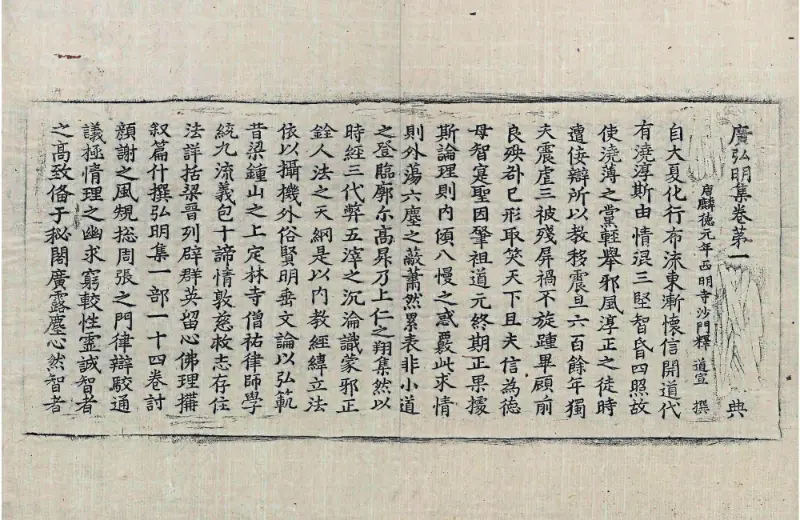 廣弘明集卷第一 典
唐麟德元年西明寺沙門釋 道宣 撰
自大夏化行布流東漸懷信開道代
有澆淳斯由情混三堅智昏四照故
使澆薄之黨輕舉邪風淳正之徒時
遭佞辯所以教移震旦六百餘年獨
夫震虐三被殘屏禍不旋踵畢顧前
良殃咎已形取笑天下且夫信為德
母智寔聖因肇祖道元終期正果據
斯論理則內傾八慢之惑覈此求情
則外蕩六塵之蔽蕭然累表非小道
之登臨廓尒高昇乃上仁之翔集然以
時經三代弊五滓之沉淪識蒙邪正
銓人法之天網是以內教經緯立法
依以攝機外俗賢明垂文論以弘軌
昔梁鍾山之上定林寺僧祐律師學
統九流義包十諦情敦慈救志存住
法詳括梁晉列辟群英留心佛理搆
叙篇什撰弘明集一部一十四卷討
顏謝之風規揔周張之門律辯駮通
議極情理之幽求窮較性靈誠智者
之高致備于秘閣廣露塵心然智者